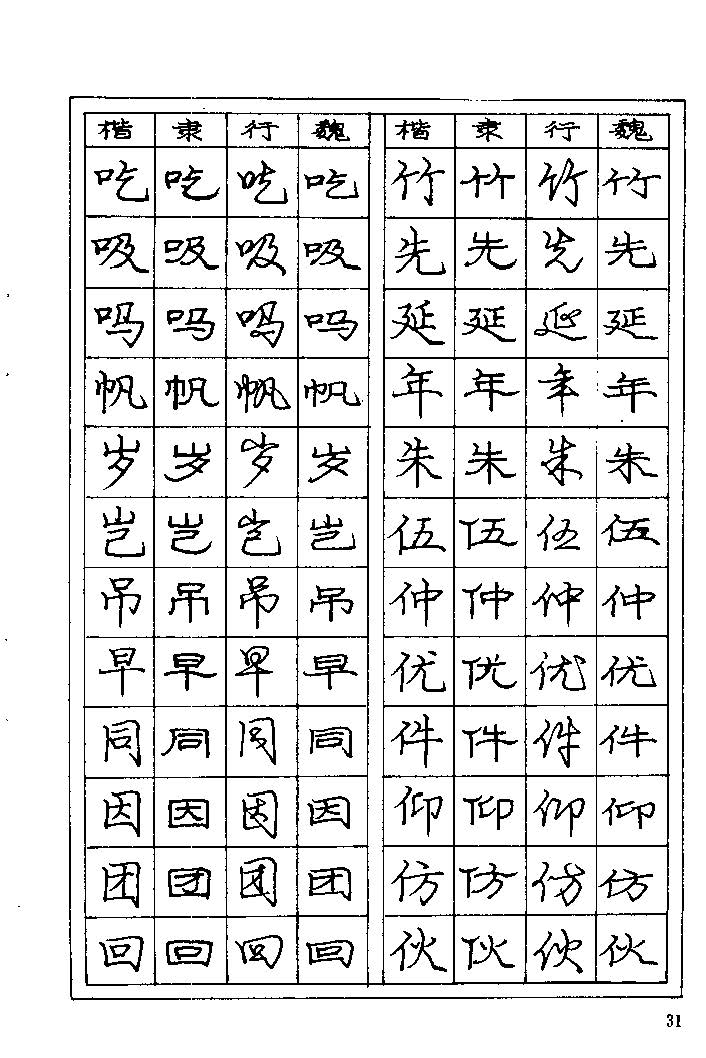 楷 隶 行 魏 楷 隶 行 魏
吃 吃 吃 吃 竹 竹 竹 竹
吸 吸 吸 吸 先 先 先 先
吗 吗 吗 吗 延 延 延 延
帆 帆 帆 帆 年 年 年 年
岁 岁 岁 岁 朱 朱 朱 朱
岂 岂 岂 岂 伍 伍 伍 伍
吊 吊 吊 吊 仲 仲 仲 仲
早 早 早 早 优 优 优 优
同 同 同 同 件 件 件 件
因 因 因 因 仰 仰 仰 仰
团 团 团 团 仿 仿 仿 仿
回 回 回 回 伙 伙 伙 伙
31